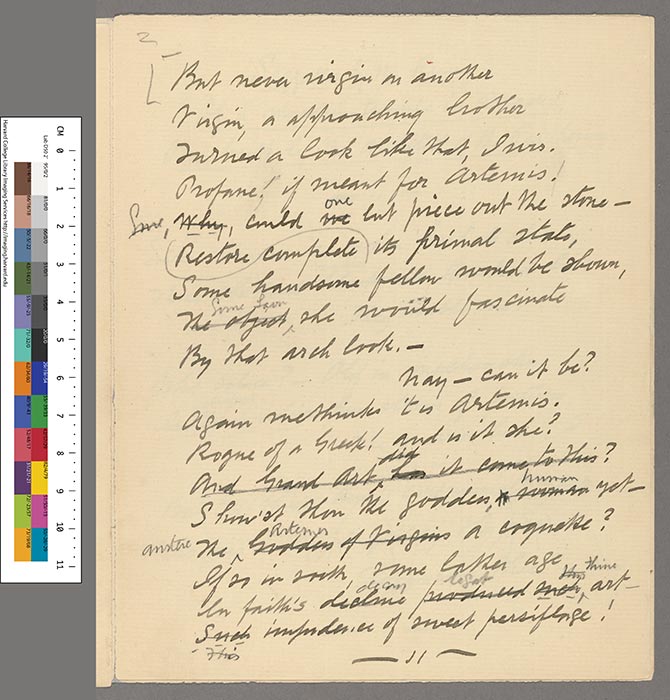 2
But never virgin on another
Virgin, a approaching brother
Turned a look like that, I wis.
Profane! if meant for Artemis!
Sure, Why, could we one but piece out the stone —
Restore complete its primal state,
Some handsome fellow would be shown,
The object Some she would fascinate
By that arch look. —
Nay — can it be?
Again methinks 't is Artemis.
Rogue of a Greek! and is it she?
And Grand Art, has did it come to this?
Show'st thou the goddess, human woman yet —
The austere Artemis Goddess of Virgins a coquette?
If so in sooth, some later age
In faith's decline decay produced begat such, this thine art —
Such This impudence of sweet persiflage!
Harvard College Library Imaging Services
CM 0 1 2 3 4 5 6 7 8 9 10 11